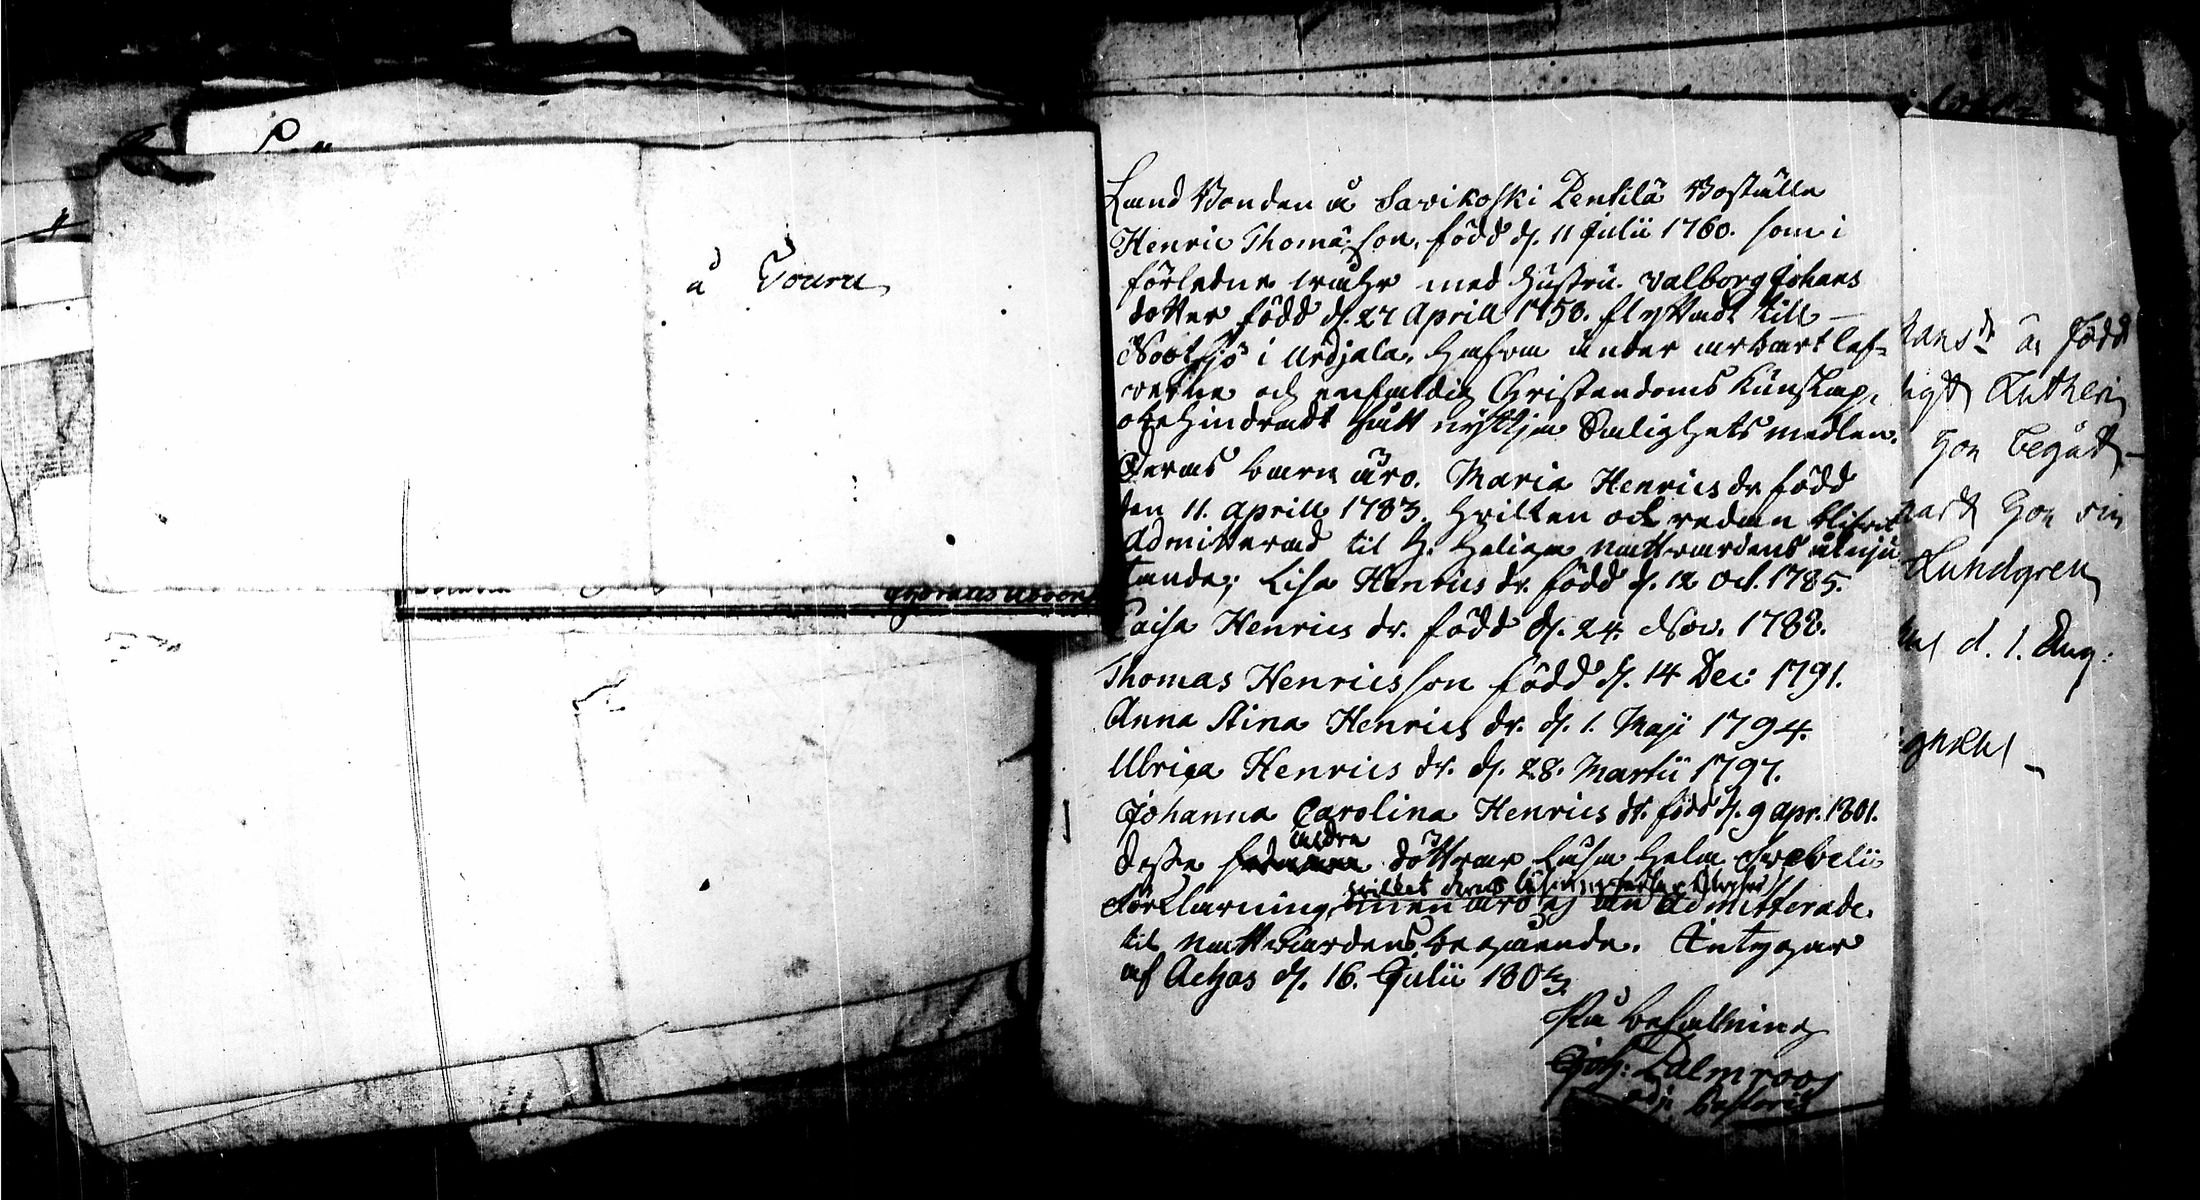 å Touru
Land Bonden å Savikoski Pentilä Boställe
Henric Thomæson, född d. 11 Julii 1760. som i
förledne med hustru Valborg Johans
dotter född d. 27 Aprill 1758. flyttadt till
Nootsjö i Urdjala, hafva under ärbart lef-
verne och enfaldig Christendoms kunskap,
obehindradt fått nyttja Salighets medlen.
Deras barn äro. Maria Henrics dr född
den 11. Aprill 1783. hvilken ock redan blifvit
Admitterad til H. Heliga nattvardens åtnju
tande; Lisa Henrics dr. född d. 12 Oct. 1785.
Caisa Henrics dr. född d. 24. Nov. 1788.
Thomas Henricsson född d. 14 Dec: 1791.
Anna Stina Henrics dr. d. 1. Maji 1794.
Ulrica Henrics dr. d. 28. Martii 1797.
Johanna Carolina Henrics dr. född d. 9 apr. 1801.
andra
Desse döttrar läsa hela Svebelii
hvilket deras
förklarning, men äro ej än admitterade
til nattvardens begående. Intygar
af Ackas d. 16. Julii 1803.
På befallning
Joh: Palmroos
adj: Pastoris
är född
Lutheri
hon begått
hon sin
Lundgren
d. 1. Aug: